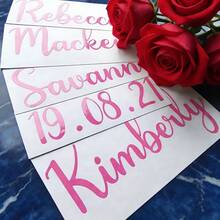 Rebecc
Macke
Savann
19.08.21
Kimberly